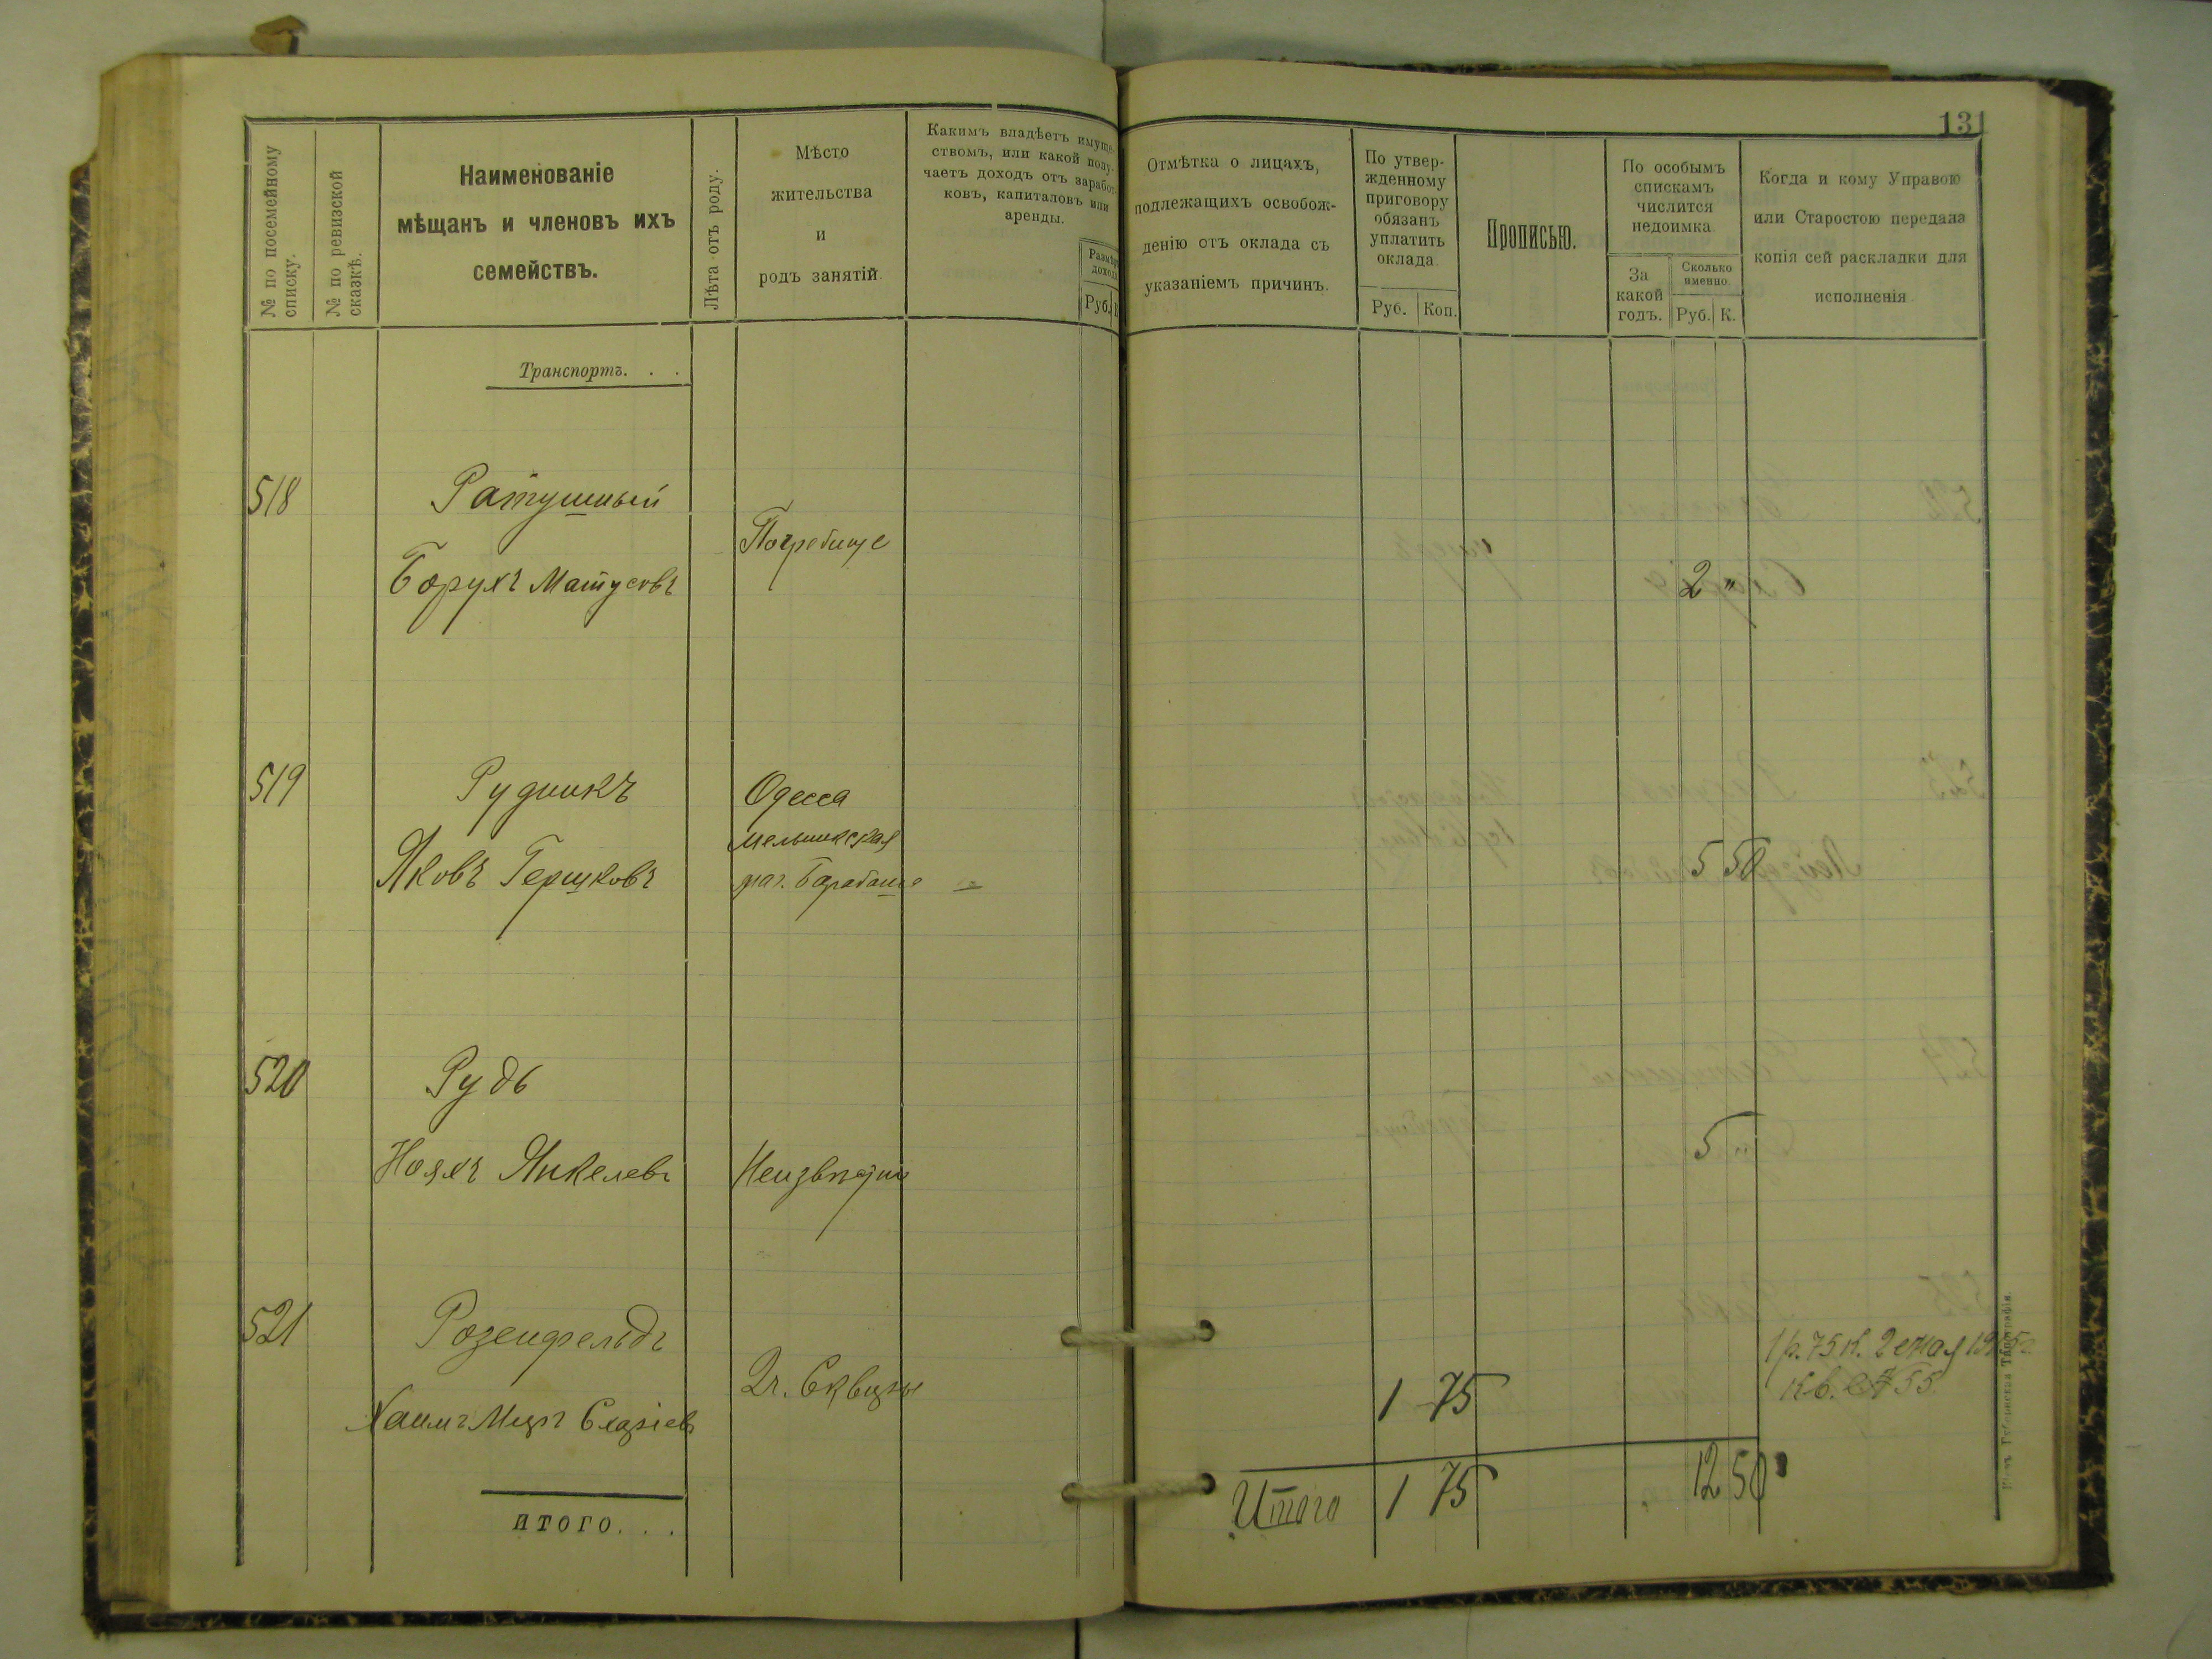 131
№ по посемейному
списку.
№ по ревизской
сказкѣ.
Наименованіе
мѣщанъ и членовъ ихъ
семействъ.
Лѣта отъ роду.
Мѣсто
жительства
и
родъ занятій
Какимъ владѣетъ имуще-
ствомъ, или какой полу-
чаетъ доходъ отъ заработ-
ковъ, капиталовъ или
аренды.
Размѣръ
дохода
Руб.
Отмѣтка о лицахъ,
подлежащихъ освобож-
денію отъ оклада съ
указаніемъ причинъ.
По утвер-
жденному
приговору
обязанъ
уплатить
оклада
Руб. Коп.
Прописью.
По особымъ
спискамъ
числится
недоимка
За
какой
годъ.
Сколько
именно
Руб. К.
Когда и кому Управою
или Старостою передана
копія сей раскладки для
исполненія
Транспортъ. . .
518 Ратушный
Погребище
Борухъ Матусовъ 2 "
519 Рудникъ Одесса
Яковъ Гершковъ 5 50
520 Рудь
Нояхъ Янкелевъ 5 "
521 Розенфельдъ
2 г. Сквиры 1 75
1 р. 75 к. 2 мая
Кв. № 55
Хаимъ
итого. . .
Итого 1 75 12 50
Губернская Типографія.